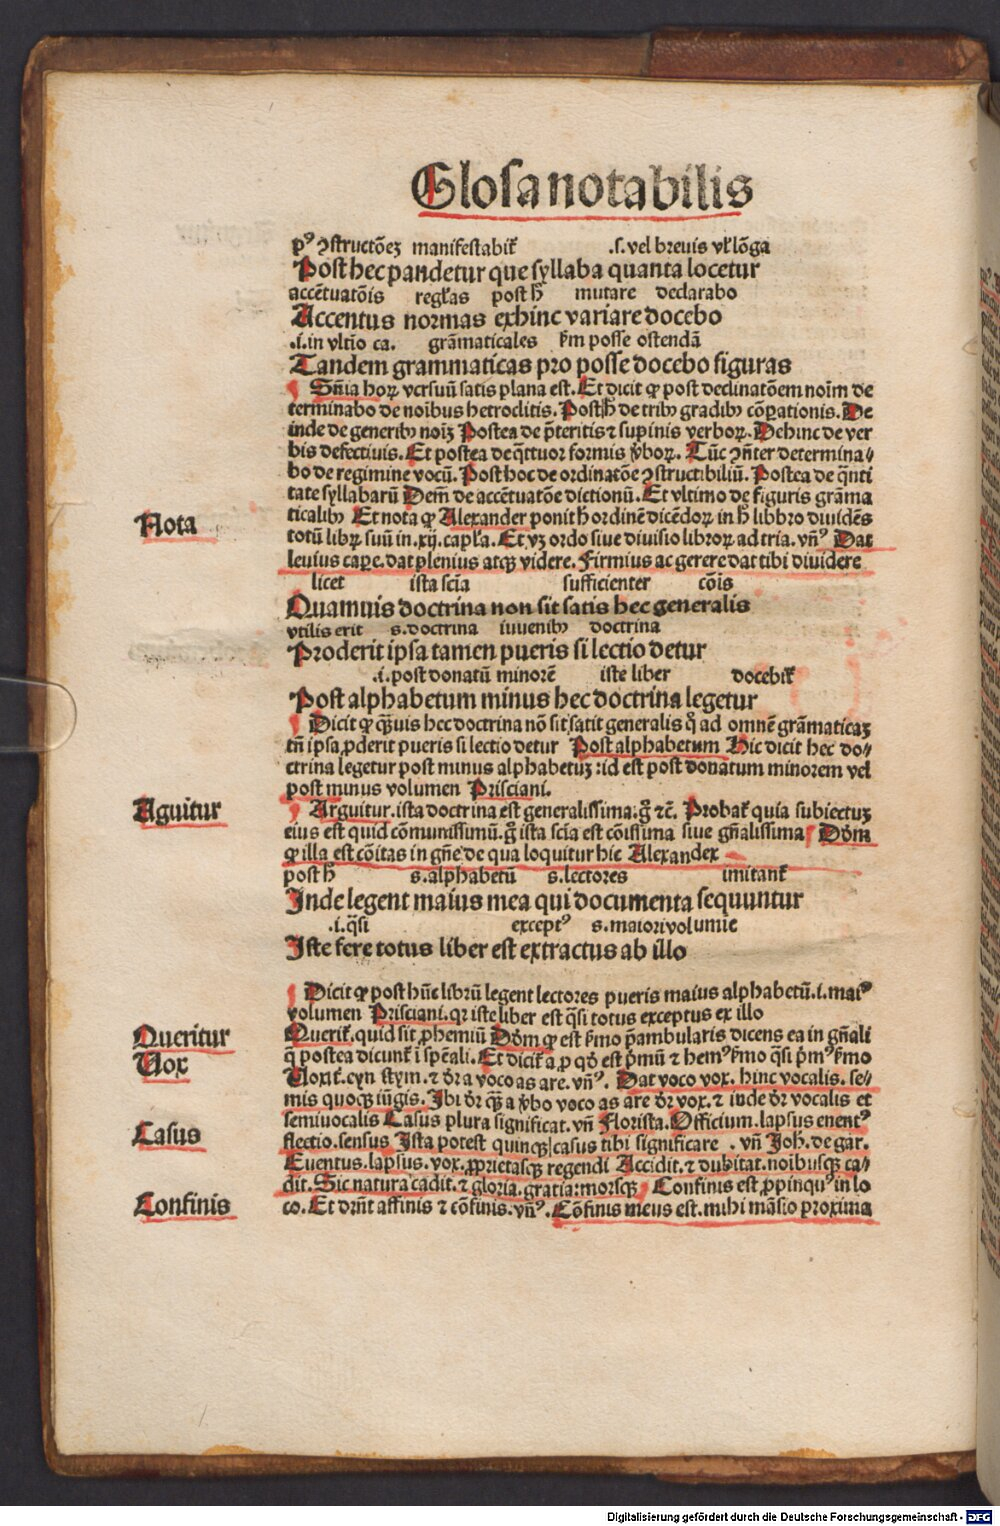 Glosa notabilis
pꝰ ꝯstructōeꝫ manifestabiť .s. vel brevis vľ lōga
Post hec pandetur que syllaba quanta locetur
accētuatōis regľas post h̄ mutare declarabo
Accentus normas exhinc variare docebo
.i. in vltīo ca. grāmaticales ẜm posse ostendā
Tandem grammaticas pro posse docebo figuras
¶ Sn̄ia hoꝝ versuū satis plana est. Et dicit ꝙ post declinatōem noīm de
terminabo de noībus hetroclitis. Post h̄ de tribꝫ gradibꝫ cōꝑationis. De
inde de generibꝫ noīꝫ Postea de p̄teritis ⁊ supinis verboꝝ. Dehinc de ver
bis defectivis. Et postea de q̄ttuor formis v̄boꝝ. Tūc ꝯn̄ter determina-
bo de regimine vocū. Post hoc de ordinatōe ꝯstructibiliū. Postea de q̄nti
tate syllabarū Dem̄ de accētuatōe dictionū. Et vltimo de figuris grāma
ticalibꝫ Et nota ꝙ Alexander ponit h̄ ordinē dicēdoꝝ in h̄ libbro dividēs
Nota
totū libꝝ suū in .xij. capľa. Et vꝫ ordo sive divisio libroꝝ ad tria. vn̄ꝰ Dat
levius caꝑe. dat plenius atqꝫ videre. Firmius ac gerere dat tibi dividere
licet ista scīa sufficienter cōis
Quamuis doctrina non sit satis hec generalis
vtilis erit s. doctrina iuvenibꝫ doctrina
Proderit ipsa tamen pueris si lectio detur
.i. post donatū minorē iste liber docebiť
Post alphabetum minus hec doctrina legetur
¶ Dicit ꝙ qꝫuis hec doctrina nō sit satit generalis q̊ ad omnē grāmaticaꝫ
tn̄ ipsa ꝓderit pueris si lectio detur Post alphabetum Hic dicit hec do-
ctrina legetur post minus alphabetuꝫ : id est post donatum minorem vel
post minus volumen Prisciani.
Aguitur
¶ Arguitur. ista doctrina est generalissima: g̊ ⁊c̄. Probať quia subiectuꝫ
eius est quid cōmunissimū. g̊ ista scīa est cōissima sive gn̄alissima ¶ Dōm
ꝙ illa est cōitas in gn̄e de qua loquitur hic Alexander
post h̄ s. alphabetū s. lectores imitanť
Inde legent maius mea qui documenta sequuntur
.i. q̄si exceptꝰ s. maiori volumie
Iste fere totus liber est extractus ab illo
¶ Dicit ꝙ post hūc librū legent lectores pueris maius alphabetū .i. maiꝰ
volumen Prisciani. qꝛ iste liber est q̄si totus exceptus ex illo
Queritur
Queriť. quid sit ꝓhemiū Dōm ꝙ est ẜmo p̄ambularis dicens ea in gn̄ali
q̄ postea dicunť ī spēali. Et diciť a ꝓ qd̊ est p̄mū ⁊ hemꝰ ẜmo q̄si p̄mꝰ ẜmo
Vox
Voxiť. cyn stym. ⁊ dr̄ a voco as are. vn̄ꝰ. Dat voco vox. hinc vocalis. se-
mis quoqꝫ iūgis. Ibi dr̄ qꝫ a v̄bo voco as are dr̄ vox. ⁊ inde dr̄ vocalis et
semivocalis Casus plura significat. vn̄ Florista. Officium. lapsus eventꝰ
Casus
flectio. sensus Ista potest quinqꝫ casus tibi significare . vn̄ Joh̄. de gar.
Eventus. lapsus. vox. ꝓprietasqꝫ regendi Accidit. ⁊ dubitat. noībusqꝫ ca-
dit. Sic natura cadit. ⁊ gloria. gratia: morsqꝫ ¶ Confinis est ꝓpinquꝰ in lo
Confinis
co. Et drn̄t affinis ⁊ cōfinis. vn̄ꝰ. Cōfinis meus est. mihi māsio proxima
Digitalisierung gefördert durch die Deutsche Forschungsgemeinschaft - DFG